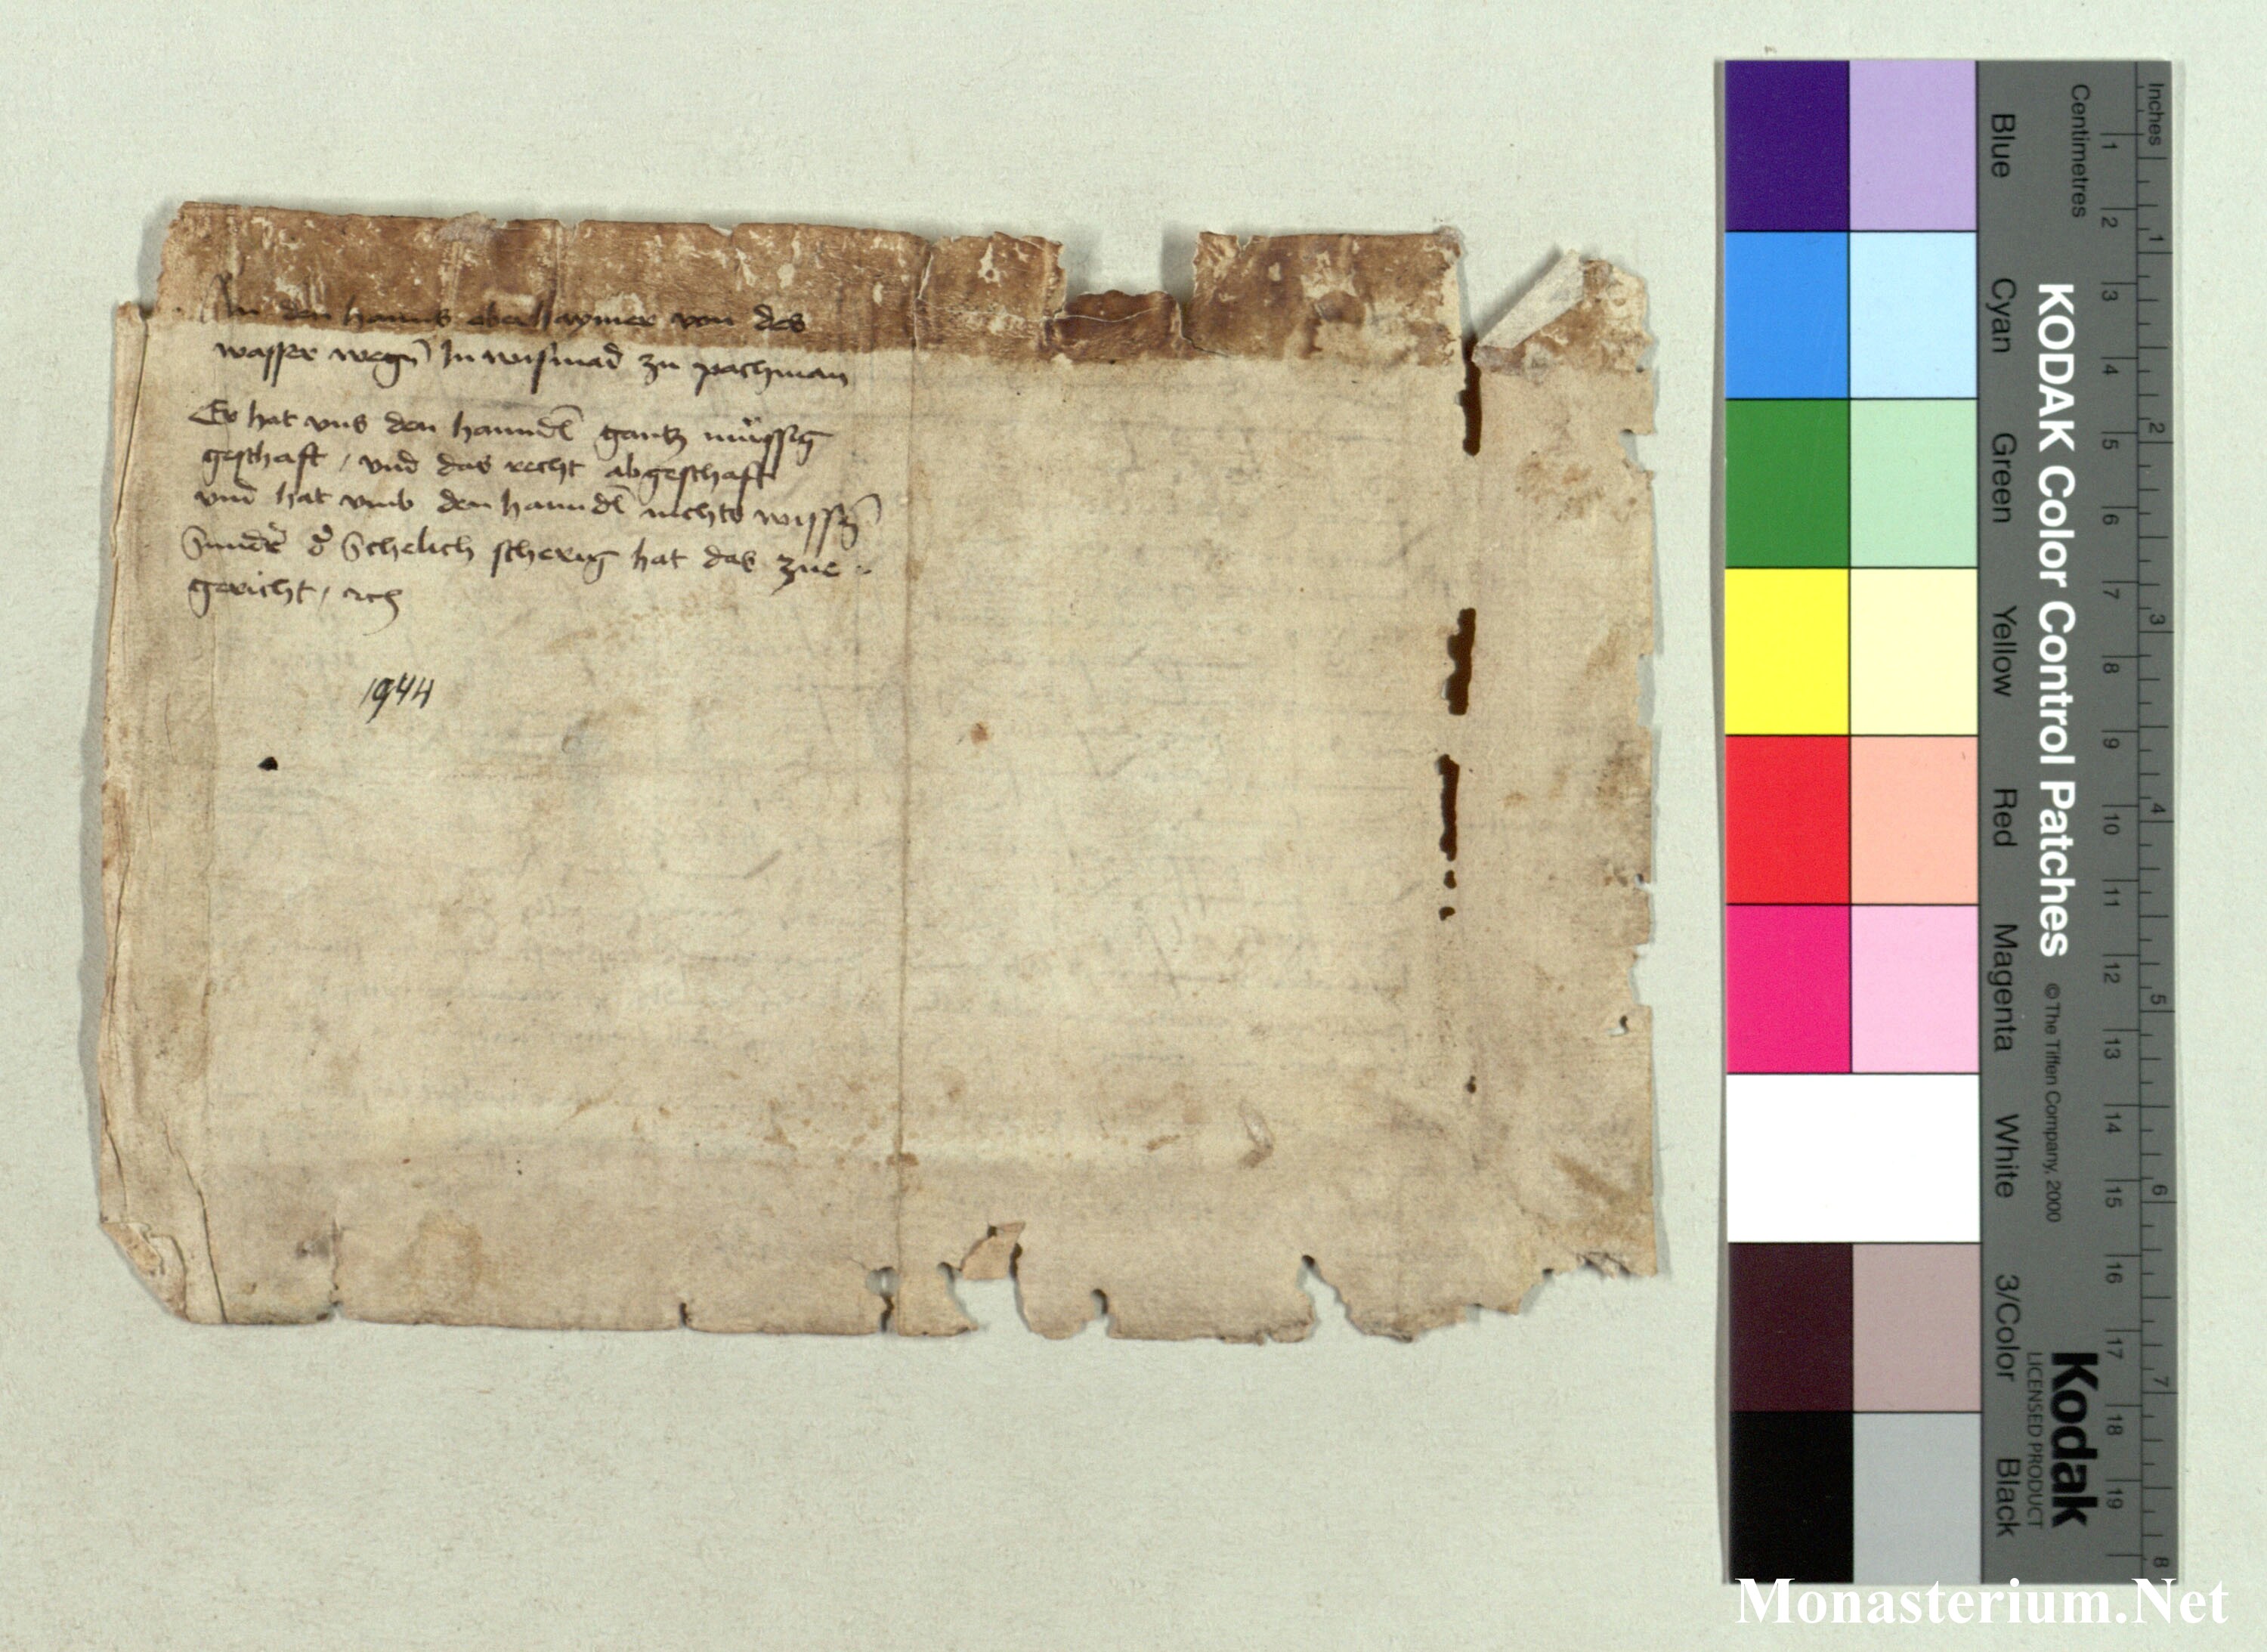 An den hanns aberhaymer von des
wasser wegn̄ In wismad zu pachman
Er hat vns den hanndl̄ gantz müssig
geschafft / vnd das recht abgeschafft
vnd hat vmb den hanndl̄ nichts wissn̄
Sunder d̓ Schelich scherig hat das zue
gericht / etc
1944
KODAK Color Control Patches
© The Tiffen Company, 2000
Kodak
LICENSED PRODUCT
Inches
1 2 3 4 5 6 7 8
Centimetres
1 2 3 4 5 6 7 8 9 10 11 12 13 14 15 16 17 18 19
Blue
Cyan
Green
Yellow
Red
Magenta
White
3/Color
Black
Monasterium.Net